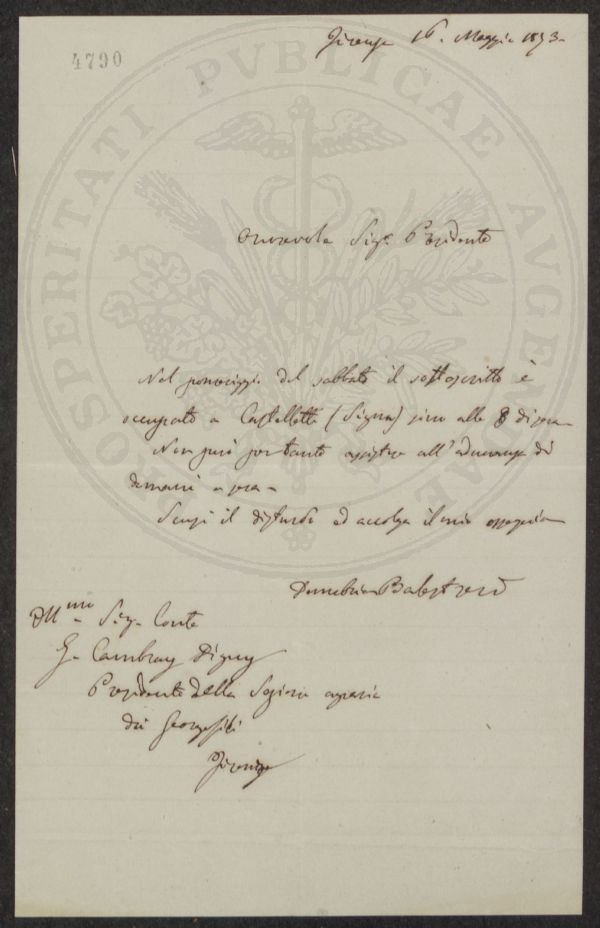 4790
Firenze 16. Maggio 1893-
PROSPERITATI PVBLICAE AVGENDAE
Onorevole Sigr. Presidente
Nel pomeriggio del sabbato il sottoscritto è
occupato a Castelletti (Signa) sino alle 8 di sera-
Non può per tanto assistere all'adunanza di
domani a sera-
Scusi il disturbo ed accolga il mio ossequio
Balestreri
Ill.mo Sig. Conte
G. Cambray Digny
Presidente della Sezione agraria
dei Georgofili
Firenze